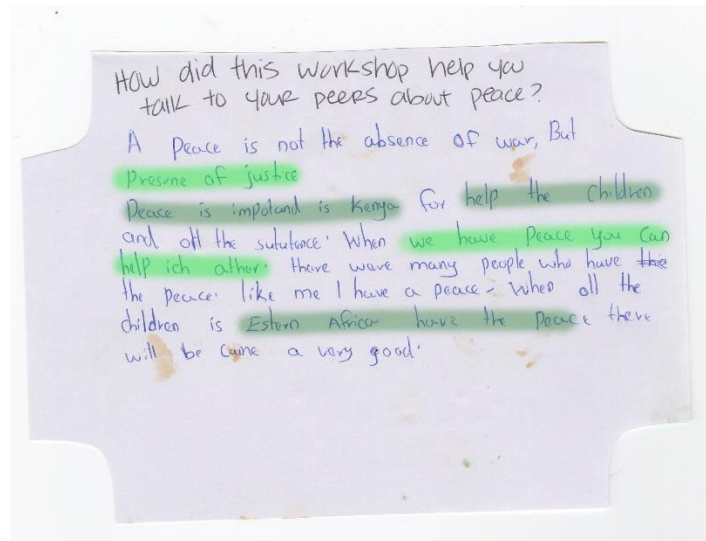 How did this workshop help you
talk to your peers about peace?
A Peace is not the absence of war, But
Presene of justice
Peace is impotand is Kenya for help the children
and oll the sututance. When we have Peace you can
help ich ather. there wave many people who have
the peace. like me I have a peace. When all the
children is Estern Africa have the Peace there
will be came a very good.